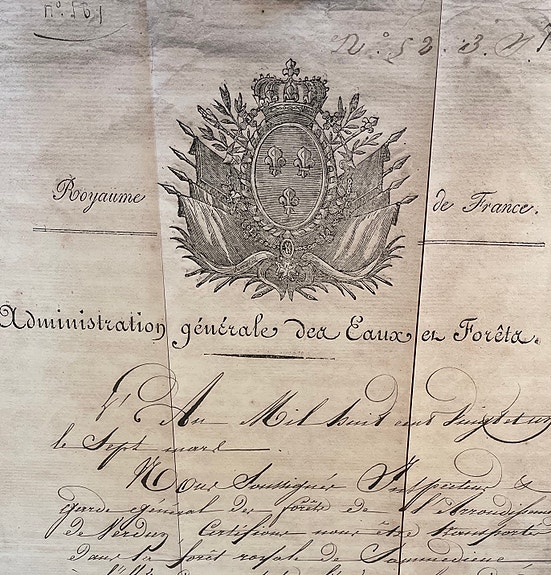 n.° 561
N.° 52.
Royaume de France.
Administration générale des Eaux et Forêts.
L'An Mil huit cent Vingt et un
le Sept mars.
Nous Soussignés Inspecteur &
garde général des forêts de l'Arrondisseme
de Verdun Certifions nous être transportés
dans la forêt royale de Sommedieue